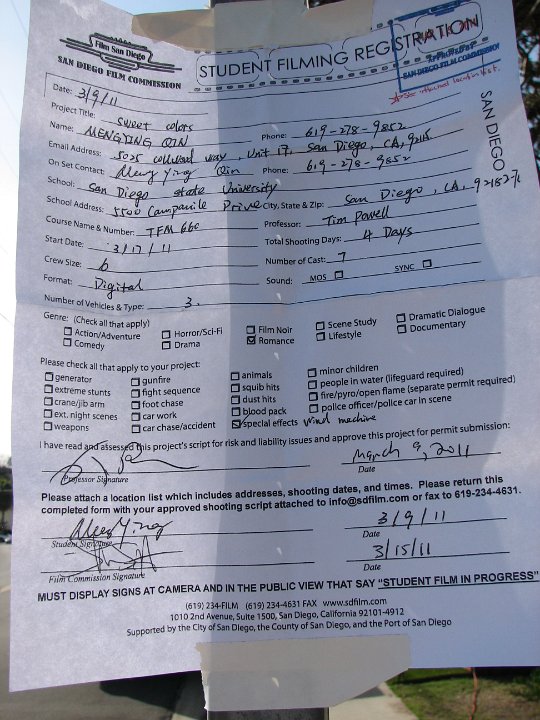 Film San Diego
SAN DIEGO FILM COMMISSION
STUDENT FILMING REGISTRATION
APPROVED BY
SAN DIEGO FILM COMMISSION
* See attached location list.
SAN DIEGO
Date: 3/9/11
Project Title: sweet colors
Name: MENGYING QIN Phone: 619-278-9852
Email Address: 5025 collwood way, Unit 17, San Diego, CA, 92115
On Set Contact: Meng Ying Qin Phone: 619-278-9852
School: San Diego State University
School Address: 5500 Campanile Drive City, State & Zip: San Diego, CA, 92182
Course Name & Number: TFM 660 Professor: Tim Powell
Start Date: 3/17/11 Total Shooting Days: 4 Days
Crew Size: 6 Number of Cast: 7
Format: Digital Sound: MOS SYNC
Number of Vehicles & Type: 3.
Genre: (Check all that apply)
Action/Adventure Horror/Sci-Fi Film Noir Scene Study Dramatic Dialogue
Comedy Drama Romance Lifestyle Documentary
Please check all that apply to your project:
generator gunfire animals minor children
extreme stunts fight sequence squib hits people in water (lifeguard required)
crane/jib arm foot chase dust hits fire/pyro/open flame (separate permit required)
ext. night scenes car work blood pack police officer/police car in scene
weapons car chase/accident special effects wind machine
I have read and assessed this project's script for risk and liability issues and approve this project for permit submission:
March 9, 2011
Professor Signature Date
Please attach a location list which includes addresses, shooting dates, and times. Please return this
completed form with your approved shooting script attached to info@sdfilm.com or fax to 619-234-4631.
Meng Ying 3/9/11
Student Signature Date
3/15/11
Film Commission Signature Date
MUST DISPLAY SIGNS AT CAMERA AND IN THE PUBLIC VIEW THAT SAY "STUDENT FILM IN PROGRESS"
(619) 234-FILM (619) 234-4631 FAX www.sdfilm.com
1010 2nd Avenue, Suite 1500, San Diego, California 92101-4912
Supported by the City of San Diego, the County of San Diego, and the Port of San Diego